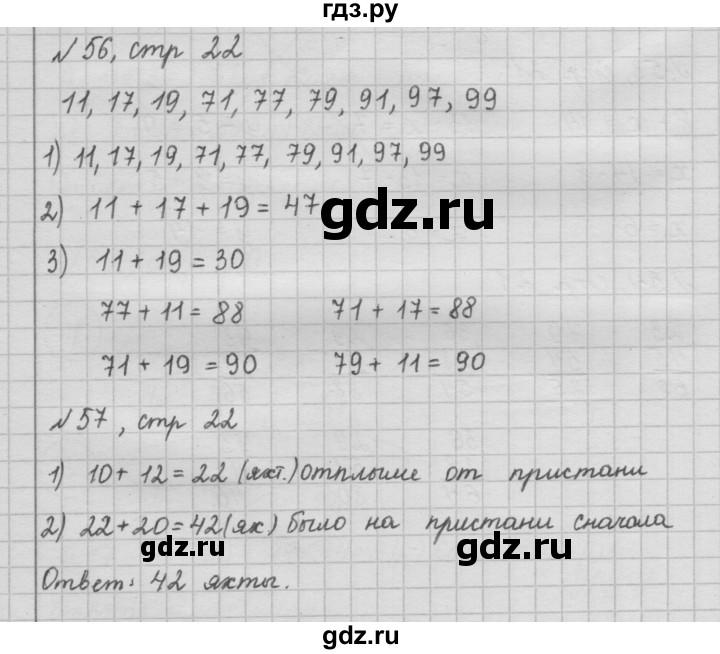 гдз.ру
№ 56, стр 22
11, 17, 19, 71, 77, 79, 91, 97, 99
1) 11, 17, 19, 71, 77, 79, 91, 97, 99
2) 11 + 17 + 19 = 47
gdz.ru
3) 11 + 19 = 30
77 + 11 = 88 71 + 17 = 88
71 + 19 = 90 79 + 11 = 90
№ 57, стр 22
1) 10 + 12 = 22 (яхт.) отплыше от пристани
2) 22 + 20 = 42 (ях) было на пристани сначола
gdz.ru gdz.ru
Ответ: 42 яхты.
gdz.ru